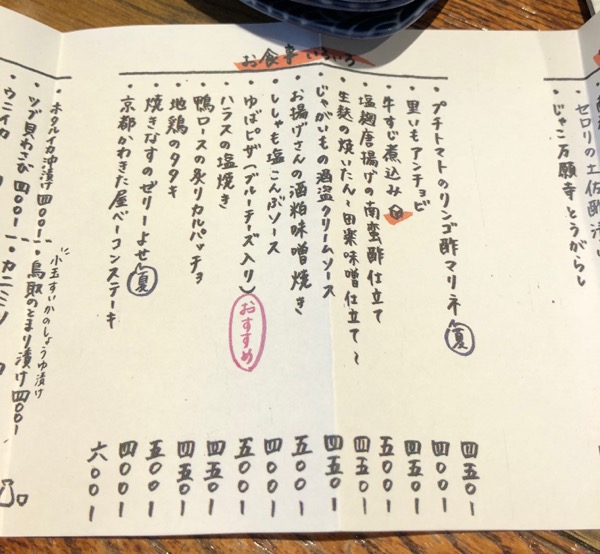 セロリの土佐酢漬
じゃこ万願寺とうがらし
お食事いろいろ
・プチトマトのリンゴ酢マリネ 夏 四五〇ー
・里いもアンチョビ 四〇〇ー
・牛すじ煮込み 四五〇ー
・塩麹唐揚げの南蛮酢仕立て 五〇〇ー
・生麩の焼いたん〜田楽味噌仕立て〜 四五〇ー
・じゃがいもの酒盗クリームソース 四五〇ー
・お揚げさんの酒粕味噌焼き 五〇〇ー
・ししゃも塩こんぶソース 四〇〇ー
・ゆばピザ(ブルーチーズ入り) おすすめ 五〇〇ー
・ハラスの塩焼き 四五〇ー
・鴨ロースの炙りカルパッチョ 四五〇ー
・地鶏のタタキ 五〇〇ー
・焼きなすのゼリーよせ 夏 四〇〇ー
・京都かわきた屋ベーコンステーキ 六〇〇ー
・ホタルイカ沖漬け 四〇〇ー
・ツブ貝わさび 四〇〇ー
・ウニイカ
小玉すいかのしょうゆ漬け
・鳥取のとまり漬け 四〇〇ー
・カニミソ